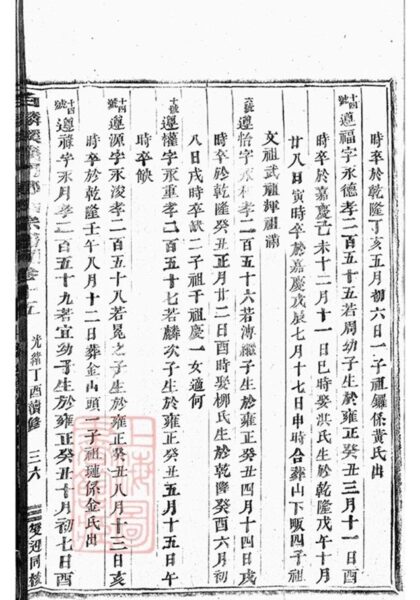 時卒於乾隆丁亥五月初六日一子祖鑼係黃氏出
十四號遵福字永德孝二百五十五若周幼子生於雍正癸丑三月十一日酉
時卒於嘉慶己未十二月十一日巳時娶洪氏生於乾隆戊午十月
廿八日寅時卒於嘉慶戊辰七月十七日申時合葬山下畈四子祖
文祖武祖輝祖滿
號遵怡字永和孝二百五十六若溥繼子生於雍正癸丑四月十四日戌
時卒於乾隆癸丑正月廿二日酉時娶柳氏生於乾隆癸酉六月初
八日戌時卒缺二子祖千祖慶一女適何
號遵權字永重孝二百五十七若麟次子生於雍正癸丑五月十五日午
時卒缺
十四號遵源字永浚孝二百五十八若冕之子生於雍正癸丑八月十三日亥
時卒於乾隆壬午八月十二日葬金山頭一子祖璉係金氏出
十四號遵祿字永月孝二百五十九若宜幼子生於雍正癸丑十月初七日酉
五
光緒丁酉續修
三六
雙過同校